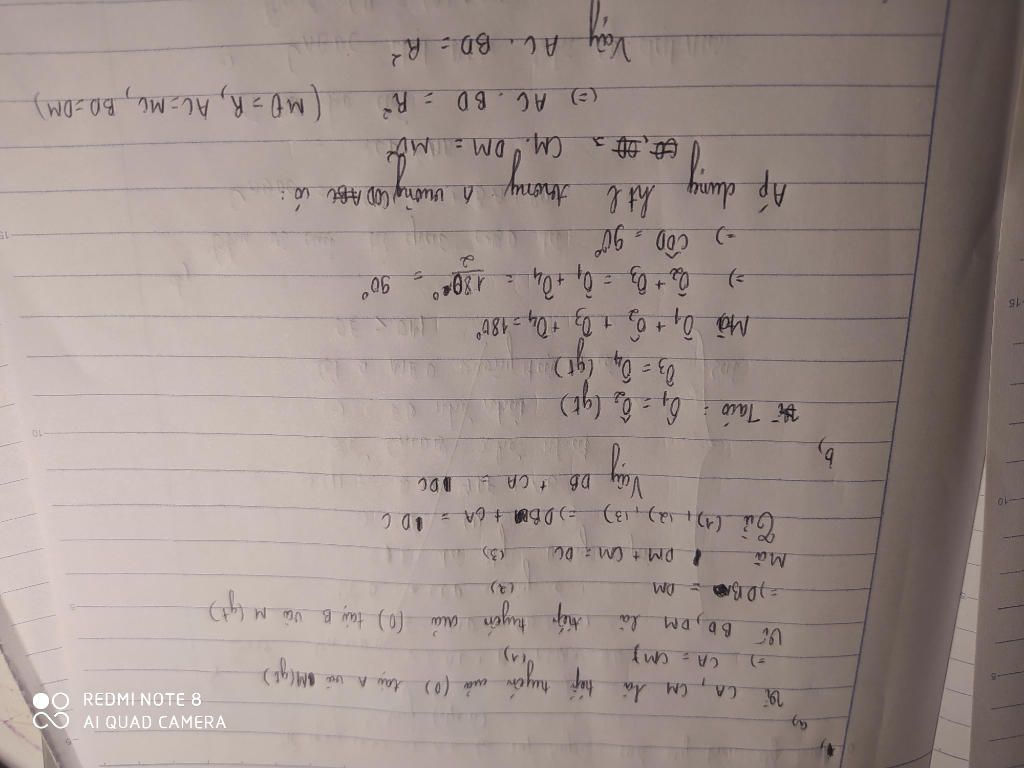 1,
a,
Vì CA, CM là tiếp tuyến của (O) tại A và M (gt)
=) CA = CM (1)
Vì BD, DM là tiếp tuyến của (O) tại B và M (gt)
=) DB = DM (2)
Mà DM + CM = DC (3)
Từ (1), (2), (3) =) DB + CA = DC
Vậy DB + CA = DC
b,
Ta có: Ô1 = Ô2 (gt)
Ô3 = Ô4 (gt)
Mà Ô1 + Ô2 + Ô3 + Ô4 = 180°
=) Ô2 + Ô3 = Ô1 + Ô4 = 180°/2 = 90°
=) CÔD = 90°
Áp dụng htl trong Δ vuông COD có
CM. DM = MO²
(=) AC. BD = R² (MO = R, AC=MC, BD=DM)
Vậy AC. BD = R²
REDMI NOTE 8
AI QUAD CAMERA